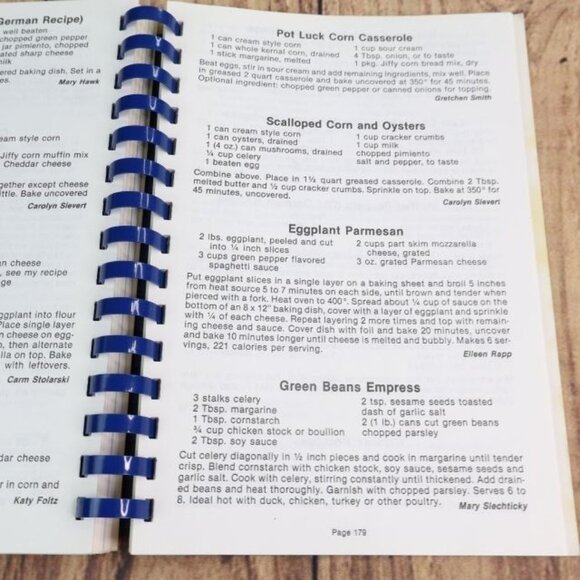 German Recipe)
well beaten
chopped green pepper
jar pimiento, chopped
ated sharp cheese
milk
ered baking dish. Set in a
Mary Hawk
eam style corn
Jiffy corn muffin mix
Cheddar cheese
gether except cheese
ttle. Bake uncovered
Carolyn Sievert
an cheese
, see my recipe
ge
ggplant into flour
Place single layer
n cheese on egg-
, then alternate
lla on top. Bake
with leftovers.
Carm Stolarski
ddar cheese
er in corn and
Katy Foltz
Pot Luck Corn Casserole
1 can cream style corn
1 can whole kernal corn, drained
1 stick margarine, melted
1 cup sour cream
4 Tbsp. onion, or to taste
1 pkg. Jiffy corn bread mix, dry
Beat eggs, stir in sour cream and add remaining ingredients, mix well. Place
in greased 2 quart casserole and bake uncovered at 350° for 45 minutes.
Optional ingredient: chopped green pepper or canned onions for topping.
Gretchen Smith
Scalloped Corn and Oysters
1 can cream style corn
1 can oysters, drained
1 (4 oz.) can mushrooms, drained
¼ cup celery
1 beaten egg
1 cup cracker crumbs
1 cup milk
chopped pimiento
salt and pepper, to taste
Combine above. Place in 1½ quart greased casserole. Combine 2 Tbsp.
melted butter and ½ cup cracker crumbs. Sprinkle on top. Bake at 350° for
45 minutes, uncovered.
Carolyn Sievert
Eggplant Parmesan
2 lbs. eggplant, peeled and cut
into ¼ inch slices
3 cups green pepper flavored
spaghetti sauce
2 cups part skim mozzarella
cheese, grated
3 oz. grated Parmesan cheese
Put eggplant slices in a single layer on a baking sheet and broil 5 inches
from heat source 5 to 7 minutes on each side, until brown and tender when
pierced with a fork. Heat oven to 400°. Spread about ¼ cup of sauce on the
bottom of an 8 x 12" baking dish, cover with a layer of eggplant and sprinkle
with ¼ of each cheese. Repeat layering 2 more times and top with remain-
ing cheese and sauce. Cover dish with foil and bake 20 minutes, uncover
and bake 10 minutes longer until cheese is melted and bubbly. Makes 6 ser-
vings, 221 calories per serving.
Eileen Rapp
Green Beans Empress
3 stalks celery
2 Tbsp. margarine
1 Tbsp. cornstarch
¾ cup chicken stock or bouillon
2 Tbsp. soy sauce
2 tsp. sesame seeds toasted
dash of garlic salt
2 (1 lb.) cans cut green beans
chopped parsley
Cut celery diagonally in ½ inch pieces and cook in margarine until tender
crisp. Blend cornstarch with chicken stock, soy sauce, sesame seeds and
garlic salt. Cook with celery, stirring constantly until thickened. Add drain-
ed beans and heat thoroughly. Garnish with chopped parsley. Serves 6 to
8. Ideal hot with duck, chicken, turkey or other poultry.
Mary Slechticky
Page 179